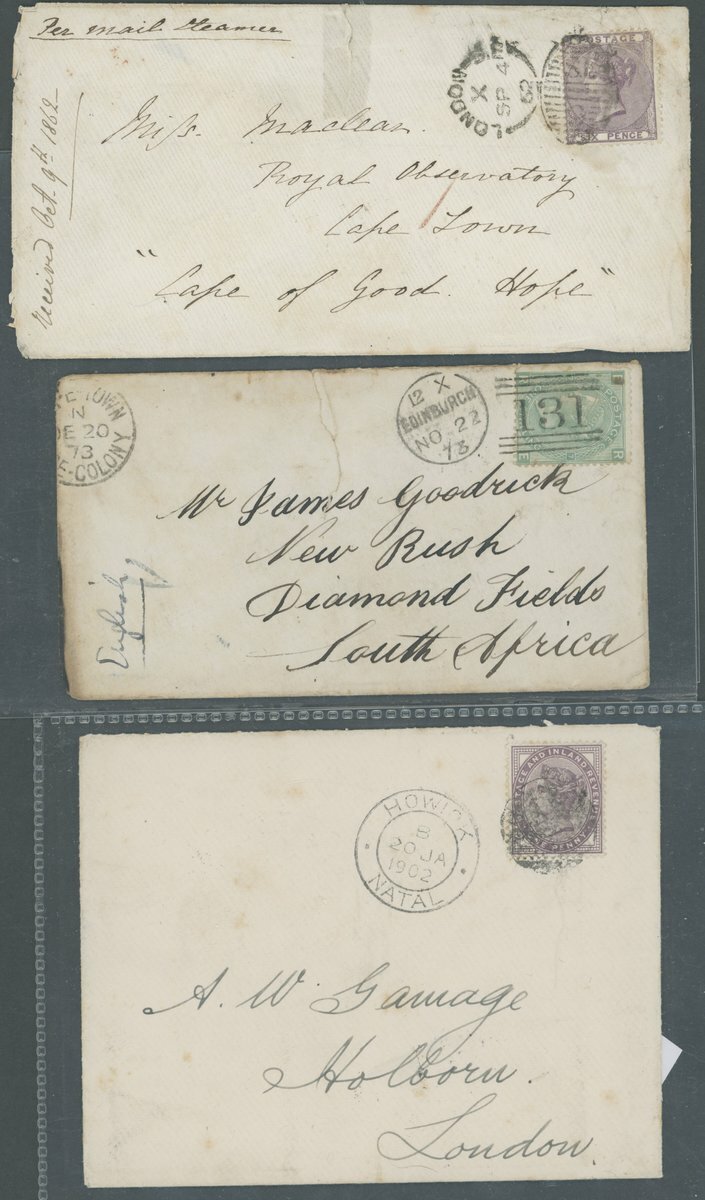 Per mail steamer
LONDON
X
SP 4
62
POSTAGE
SIX PENCE
Received Oct. 9th 1862
Miss. Maclear.
Royal Observatory
Cape Town
"Cape of Good. Hope"
TOWN
N
DE 20
73
E-COLONY
12 X
EDINBURGH
NO 22
73
131
POSTAGE
E
R
Mr James Goodrick
New Rush
Diamond Fields
South Africa
English
HOWICK
B
20 JA
1902
NATAL
AND INLAND REVEN
PENNY
A. W. Gamage
Holborn.
London.